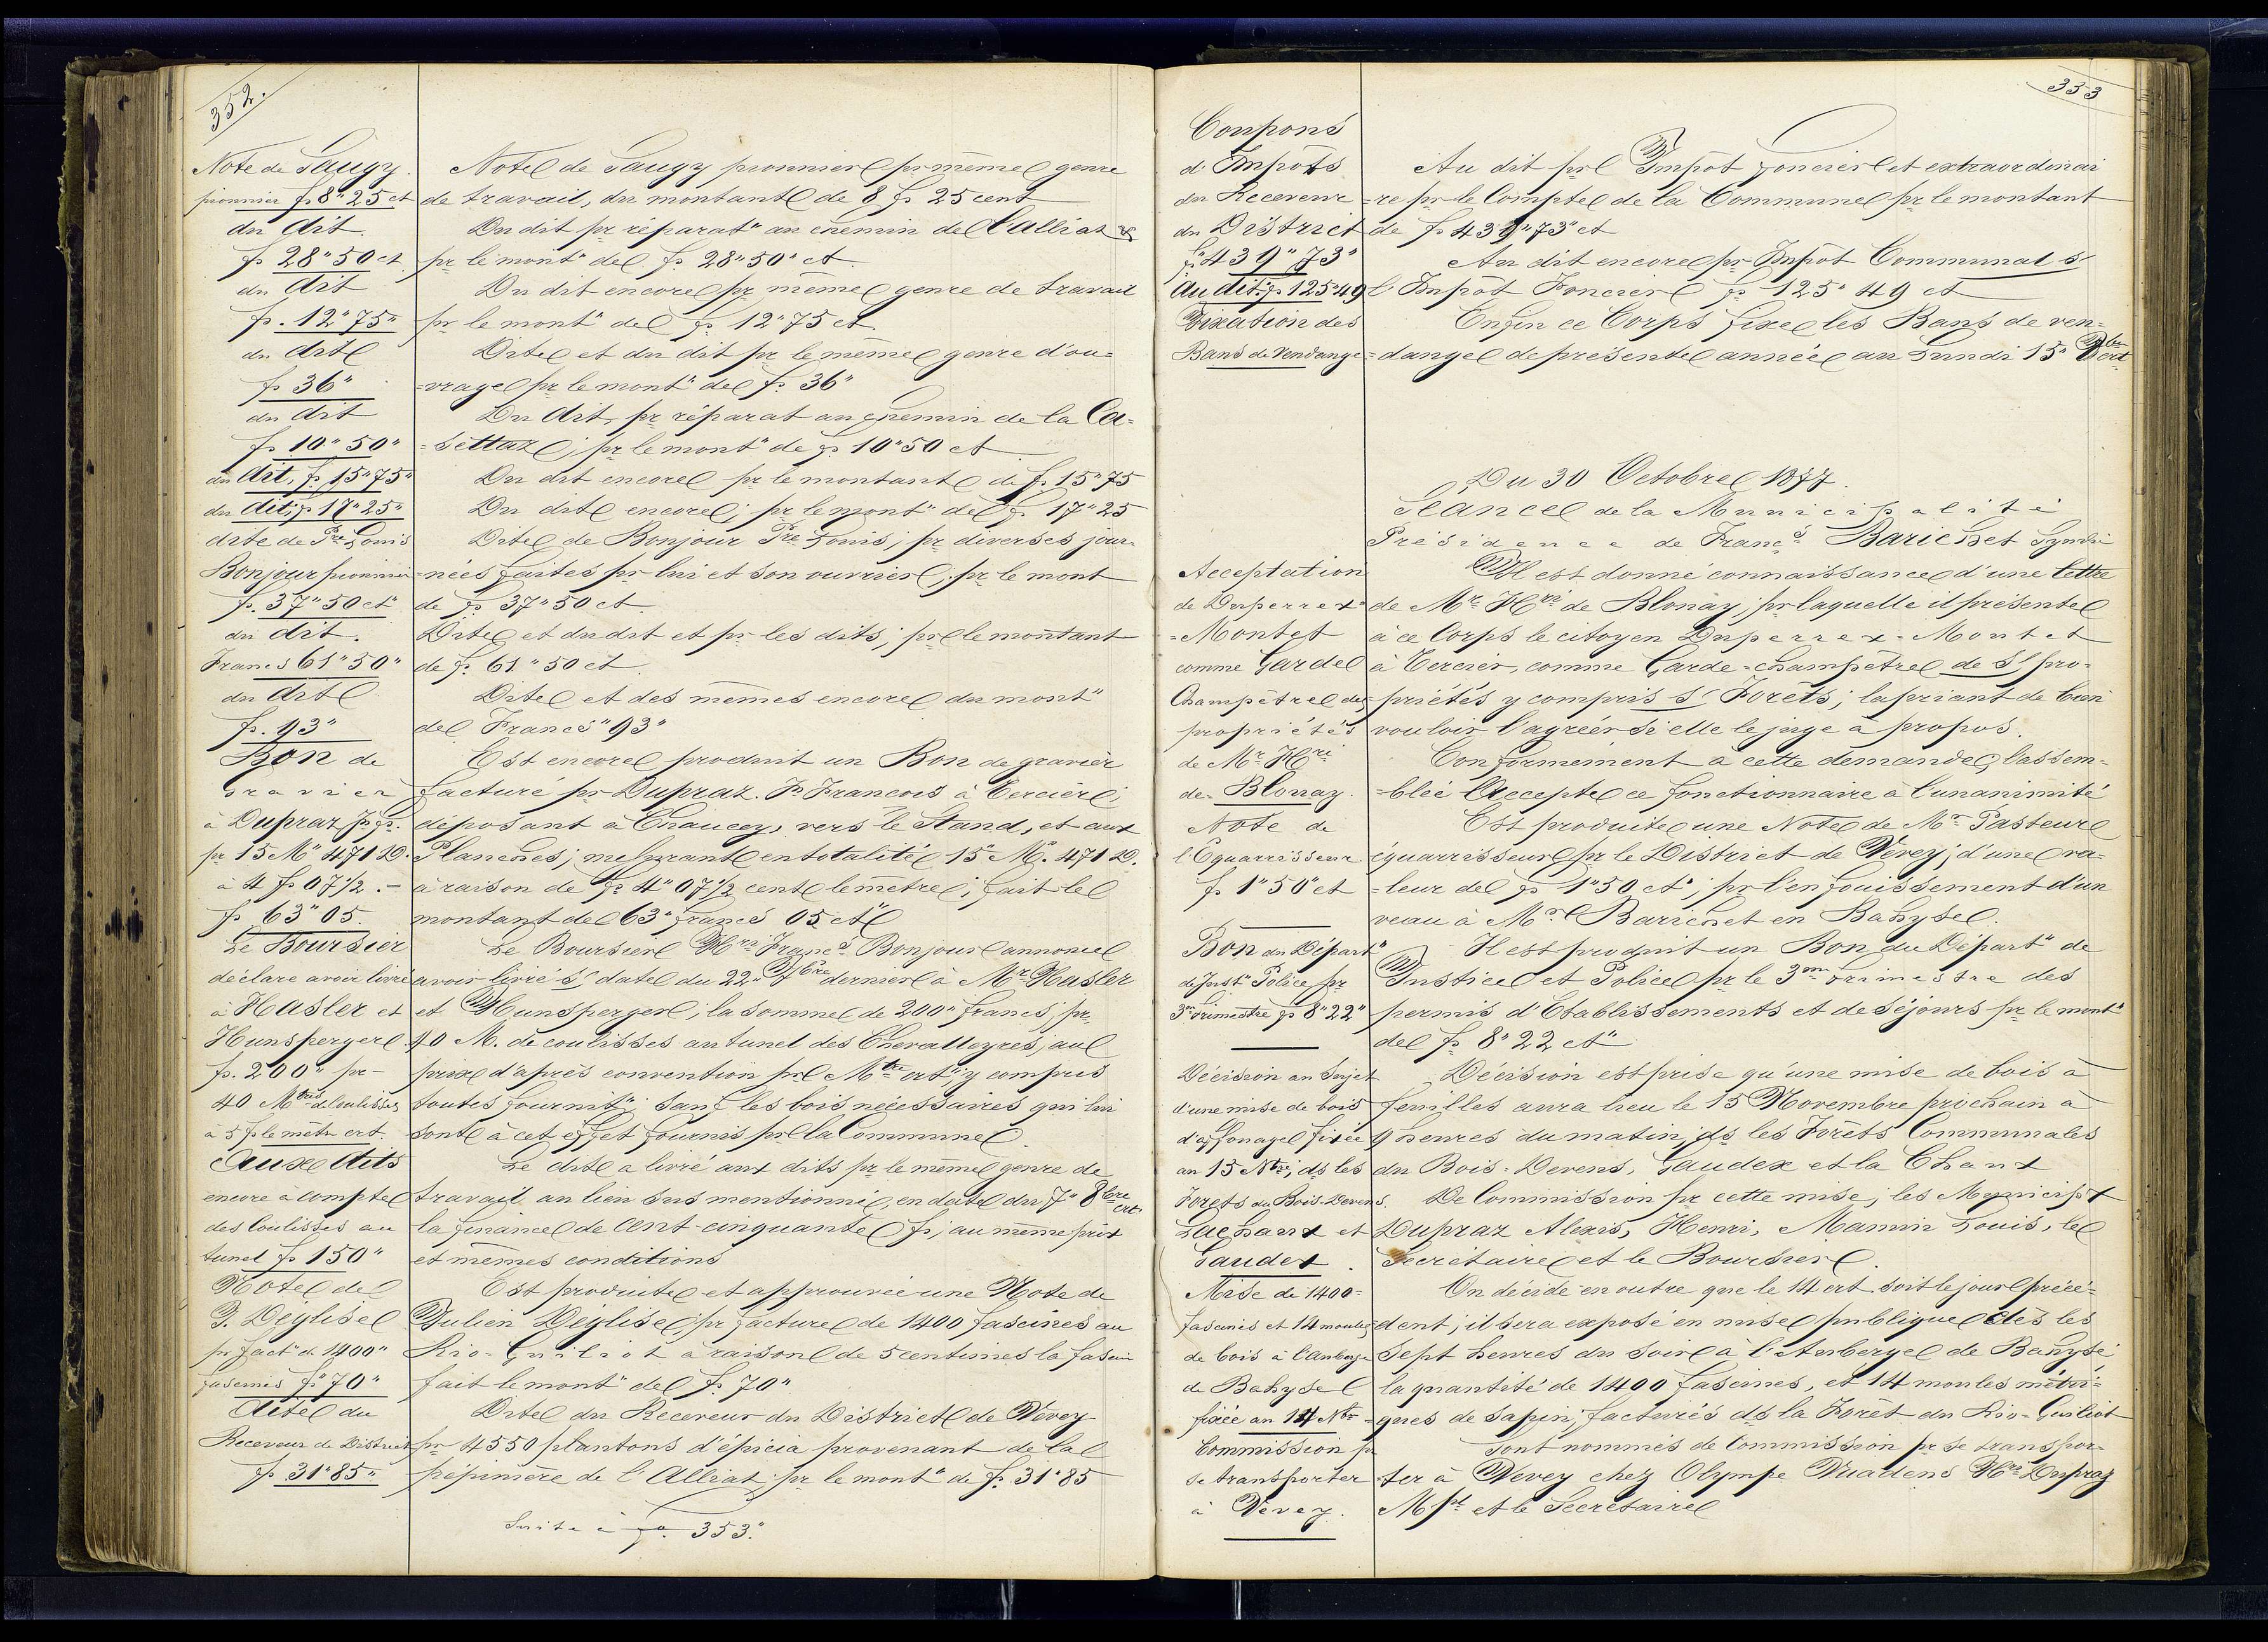 352.
Note de Saugy
pionnier fs 8" 25 ct
du dit.
fs 28" 50 ct.
du dit
fs. 12" 75"
du dit
fs 36"
du dit
fs 10" 50"
du dit, fs 15" 75"
du dit; fs 17" 25"
dite de Pre Louis
Bonjour pionnier
fs. 37" 50 ct"
du dit.
Francs 61" 50"
du dit
fs. 93"
Bon de
gravier
à Dupraz Js Fs.
pr 15 M" 471 D.
à 4 fs 07 1/2 . -
fs 63" 05.
Le Boursier
déclare avoir livré
à Hasler et
Hunsperger
fs. 200" pr -
40 Mtres de coulisses
à 5 fs le mètre crt.
Aux dits
encore à compte
des coulisses au
tunel fs 150"
Note de
J. Déglise
pr fact" de 1400"
fascines fs 70"
dite du
Receveur de District
fs 31" 85"
Note de Saugy pionnier pr même genre
de travail, du montant de 8 fs 25 cent
Du dit pr réparat" au chemin de l'Alliaz &
pr le mont" de fs 28" 50" ct.
Du dit encore pr même genre de travail
pr le mont" de fs 12" 75 ct.
Dite et du dit pr le même genre d'ou=
=vrage pr le mont" de fs. 36"
Du dit, pr réparat au chemin de la Ca=
=settaz; pr le mont" de fs 10" 50 ct
Du dit encore pr le montant de fs 15" 75
Du dit encore; pr le mont" de fs 17" 25
Dite de Bonjour Pre Louis; pr diverses jour=
=nées faites pr lui et son ouvrier; pr le mont
de fs 37" 50 ct.
Dite et du dit et pr les dits; pr le montant
de fs. 61" 50 ct
Dite et des mêmes encore du mont"
de Francs" 93"
Est encore produit un Bon de gravier
facturé pr Dupraz. Js Francois à Cercier;
déposant à Chaucey, vers le Stand, et aux
Planches; mesurant en totalité 15" M". 471 D.
à raison de fs 4" 07 1/2 cent le mètre; fait le
montant de 63" francs 05 ct"
Le Boursier Hri Francs Bonjour annonce
avoir livré s/ date du 22" 7bre dernier à Mr Hasler
et Hunsperger; la somme de 200" francs; pr
40 M. de coulisses au tunel des Chevalleyres, au
prix d'après convention pr Mtre crt"; y compris
toutes fournit"; sauf les bois nécessaires qui lui
sont à cet effet fournis pr la Commune.
Le dit a livré aux dits pr le même genre de
travail au lieu sus mentionné, en date du 7" 8bre crt
la finance de cent-cinquante fs; au même prix
et mêmes conditions
Est produite et approuvée une Note de
Julien Déglise, pr facture de 1400 fascines au
Rio-Guiliot à raison de 5 centimes la fascine
fait le mont" de fs. 70"
Dite du Receveur du District de Vevey
pr 4550 plantons d'épicia provenant de la
pépinière de l'Alliaz; pr le mont" de fs. 31" 85
Suite à fo 353."
353
Coupons
d'Impôts
du Receveur
du District
fs 439" 73"
Au dit; fs 125" 49
Fixation des
Bans de Vendange
Au dit pr Impôt foncier et extraordinai
=re pr le Compte de la Commune pr le montant
de fs 439" 73" ct
Au dit encore pr Impôt Communal s/
l'Impôt Foncier fs 125" 49 ct
Enfin ce Corps fixe les Bans de ven=
=dange de présente année au Lundi 15" 8bre crt.
Du 30 Octobre 1877.
Séance de la Municipalité
Présidence de Francs Barichet Syndic
Acceptation
de Duperrex
=Montet
comme Garde
Champêtre des
propriétés
de Mr Hri
de Blonay.
Note de
l'Equarrisseur
fs 1" 50" ct
Bon du Départ"
de Just" Police pr
3me trimestre fs 8" 22"
Décision au Sujet
d'une mise de bois
d'affouage fixée
au 15 Nbre; ds les
Forêts du Bois-Devens.
Lachaux et
Gaudex.
Mise de 1400=
fascines et 14 moules
de bois à l'auberge
de Bahyse
fixée au 14 Nbre
Commission pr
se transporter
à Vevey.
Il est donné connaissance d'une lettre
de Mr Hri de Blonay; pr laquelle il présente
à ce Corps le citoyen Duperrex-Montet
à Cercier, comme Garde-champêtre de s/ pro=
=priétés y compris s/ Forêts; la priant de bien
vouloir l'agréer si elle le juge à propos.
Conformement à cette demande, l'assem=
=blée Accepte ce fonctionnaire à l'unanimité
Est produite une Note de Mr Pasteur
équarrisseur pr le District de Vevey; d'une va=
=leur de fs 1" 50 ct"; pr l'enfouissement d'un
veau à Mr Barichet en Bahyse.
Il est produit un Bon du Départ" de
Justice et Police pr le 3me trimestre des
permis d'Etablissements et de séjours pr le mont"
de fs 8" 22 ct"
Décision est prise qu'une mise de bois à
feuilles aura lieu le 15 Novembre prochain à
9 heures du matin, ds les Forêts Communales
du Bois-Devens, Gaudex et la Chaux
De Commission pr cette mise; les Municipx
Dupraz Alexis, Henri, Mamin Louis, le
Secrétaire et le Boursier.
On décide en outre que le 14 crt soit le jour précé=
dent; il sera exposé en mise publique dès les
Sept heures du soir à l'Auberge de Bahysé
la quantité de 1400 fascines, et 14 moules métri=
=ques de sapin; facturés ds la Forêt du Rio-Guiliot
Sont nommés de Commission pr se transpor=
=ter à Vevey chez Olympe Vuadens Hri Dupraz
Mpl et le Secrétaire